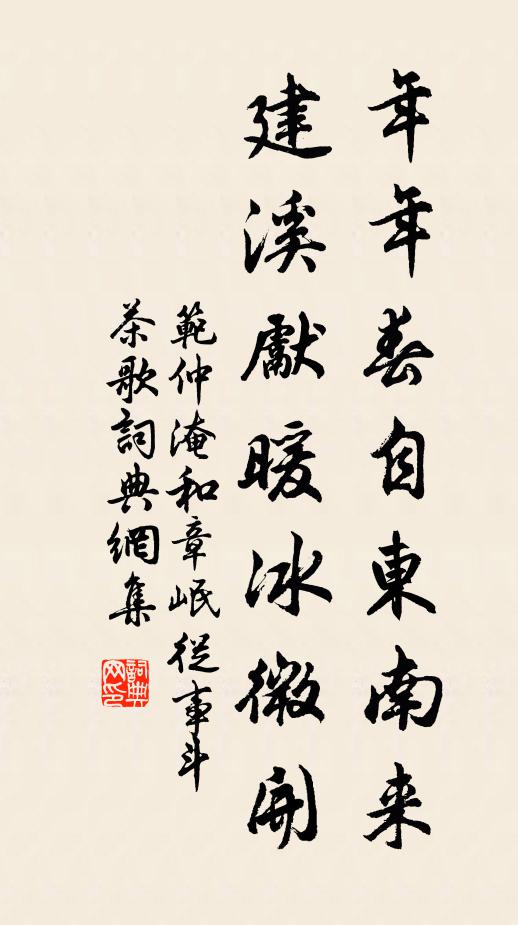 年年春自東南来
建溪獻暖冰微開
範仲淹和章岷從事斗
茶歌詞典網集
詞典网印